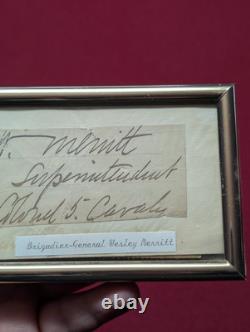 W. Merritt
Superintendent
Colonel 5. Cavalry
Brigadier-General Wesley Merritt